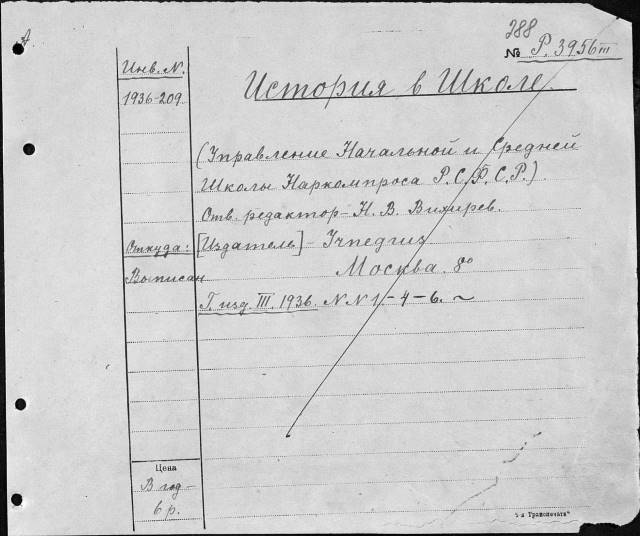 А.
288
№ Р. 3956 III
Инв. N.
1936-209
История в Школе.
(Управление Начальной и Средней
Школы Наркомпроса Р.С.Ф.С.Р.)
Отв. редактор – Н. В. Вихирев.
Откуда: [Издатель] – Учпедгиз
Выписан Москва. 8°
Г. изд. III. 1936. N N 1-4-6. ~
Цена
В год –
6 р.
Транспечать"